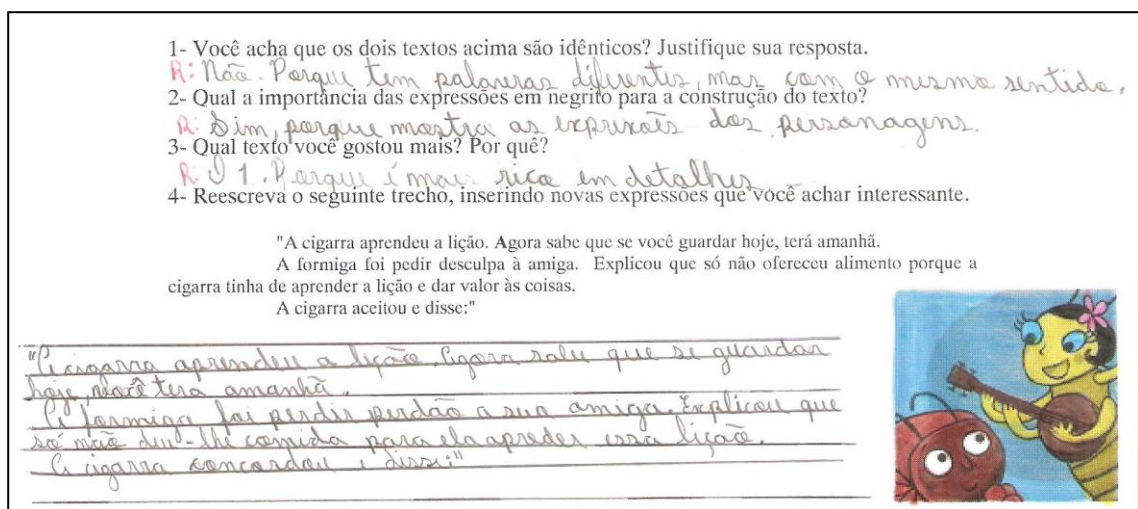 1- Você acha que os dois textos acima são idênticos? Justifique sua resposta.
R: Não. Porque tem palavras diferentes, mas com o mesmo sentido.
2- Qual a importância das expressões em negrito para a construção do texto?
R: Sim, porque mostra as exprexoẽs dos personagens.
3- Qual texto você gostou mais? Por quê?
R: O 1. Porque é mais rico em detalhes
4- Reescreva o seguinte trecho, inserindo novas expressões que você achar interessante.
"A cigarra aprendeu a lição. Agora sabe que se você guardar hoje, terá amanhã.
A formiga foi pedir desculpa à amiga. Explicou que só não ofereceu alimento porque a
cigarra tinha de aprender a lição e dar valor às coisas.
A cigarra aceitou e disse:"
"A cigarra aprendeu a lição. Agora sabe que se guardar
hoje, você terá amanhã.
A formiga foi perdir perdão a sua amiga. Explicou que
só não deu-lhe comida para ela apreder essa lição.
A cigarra concordou e disse:"